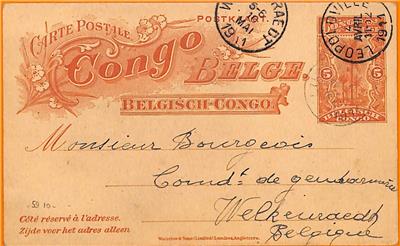 CARTE POSTALE
POSTKAART
Congo BELGE.
BELGISCH-CONGO.
LEOPOLDVILLE
AVRIL
1911
6-7
MAI
1911
5
5
Monsieur Bourgeois
Comdt de gendarmerie
Welkenraedt
Belgique
Côté réservé à l'adresse.
Zijde voor het adres alleen
Waterlow & Sons Limited, Londres, Angleterre.